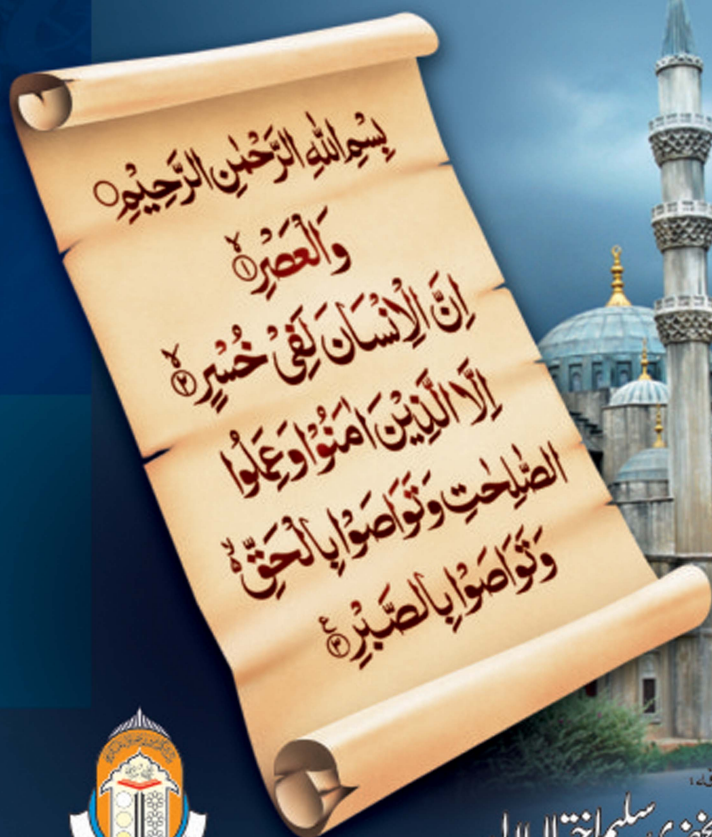 بِسْمِ اللّٰهِ الرَّحْمٰنِ الرَّحِيْمِ○
وَالْعَصْرِۙ‏﴿۱﴾
اِنَّ الْاِنْسَانَ لَفِیْ خُسْرٍۙ‏﴿۲﴾
اِلَّا الَّذِیْنَ اٰمَنُوْا وَعَمِلُوا
الصّٰلِحٰتِ وَتَوَاصَوْا بِالْحَقِّ ۙ۬
وَتَوَاصَوْا بِالصَّبْرِ﴿۳﴾ع
سلیم اختر